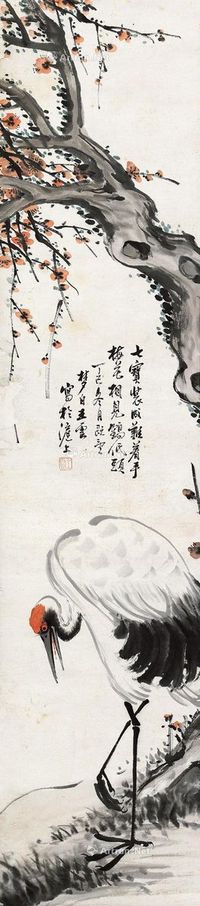 七寶裝成難着手
梅花相見鶴低頭
丁巳冬月
夢白王雲
寫於滬上
Artron.Net